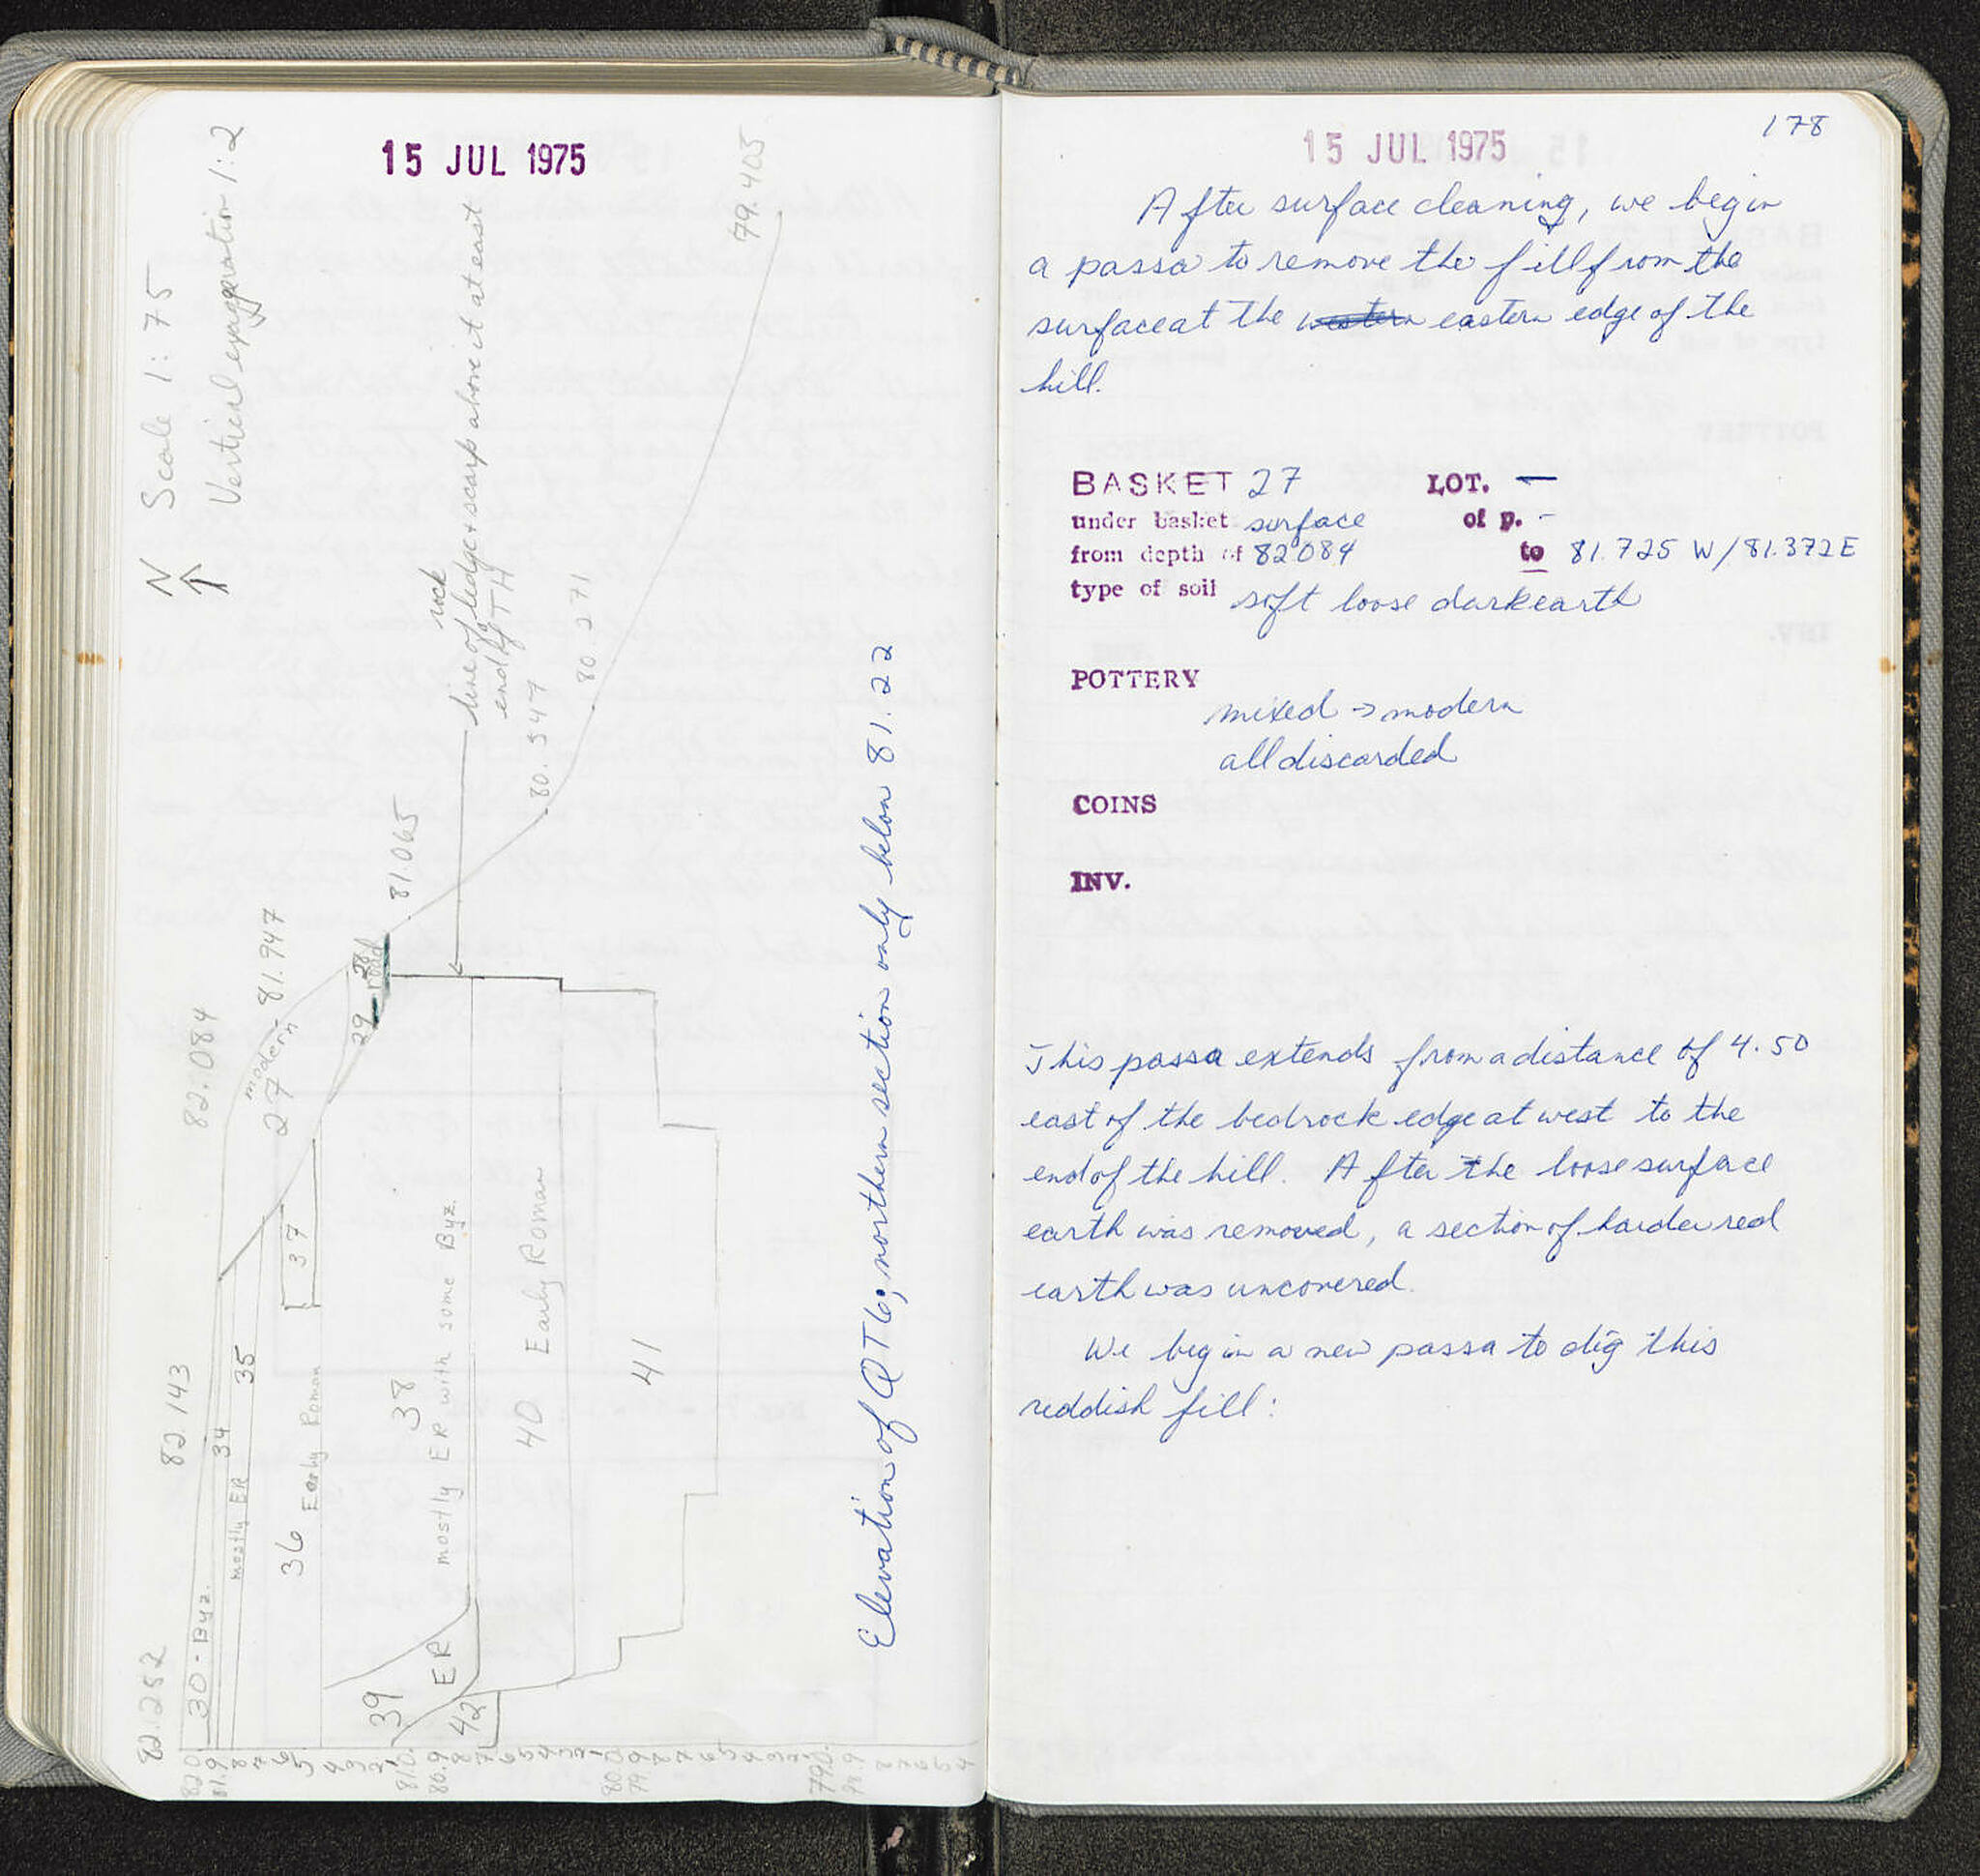 15 JUL 1975
N
Scale 1:75
Vertical exaggeration 1:2
79.405
rock
line of ledge & scarp above it at east
end of TH
80.271
80.547
81.065
modern
27
81.947
28
road
29
82.084
37
82.143
34
35
mostly ER
36
Early Roman
38
mostly ER with some Byz.
40
Early Roman
41
82.282
30 - Byz.
39
ER
42
82.0
81.9
8
7
6
5
4
3
2
1
81.0
80.9
8
7
6
5
4
3
2
1
80.0
79.9
8
7
6
5
4
3
2
1
79.0
78.9
8
7
6
5
4
Elevation of QT6; northern section only below 81.22
178
15 JUL 1975
After surface cleaning, we begin
a passa to remove the fill from the
surface at the western eastern edge of the
hill.
BASKET 27 LOT. —
under basket surface of p. -
from depth of 82.084 to 81.725 W/81.372 E
type of soil soft loose dark earth
POTTERY
mixed → modern
all discarded
COINS
INV.
This passa extends from a distance of 4.50
east of the bedrock edge at west to the
end of the hill. After the loose surface
earth was removed, a section of harder red
earth was uncovered.
We begin a new passa to dig this
reddish fill: